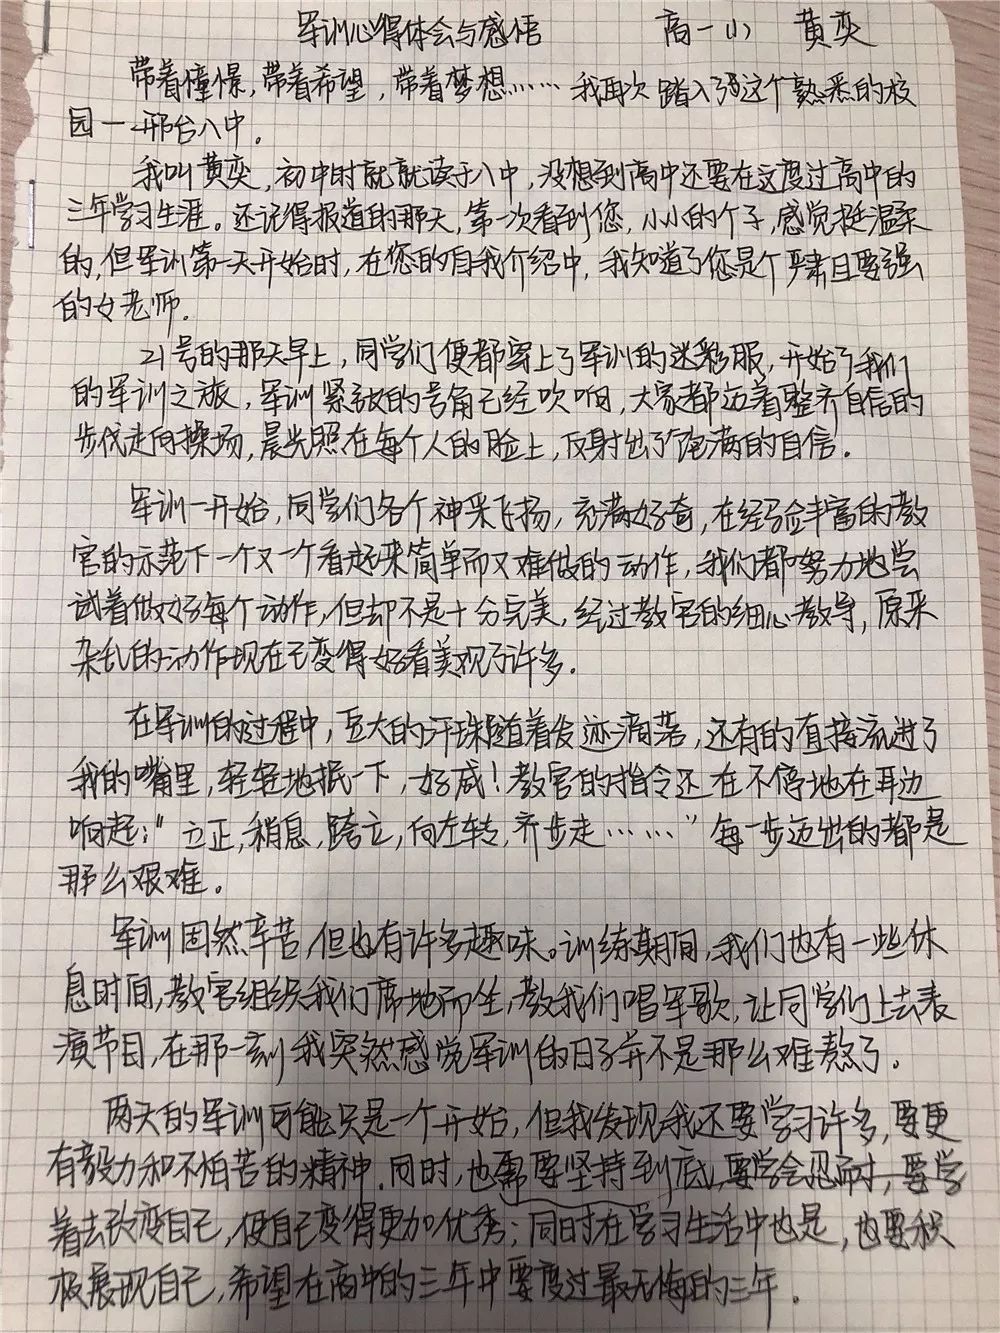 军训心得体会与感悟 高一 黄奕
带着憧憬,带着希望,带着梦想……我再次踏入了这个熟悉的校
园一邢台八中.
我叫黄奕,初中时就就读于八中,没想到高中还要在这度过高中的
三年学习生涯。还记得报道的那天,第一次看到您,小小的个子,感觉挺温柔
的,但军训第一天开始时,在您的自我介绍中,我知道了您是个严肃且要强
的女老师.
21号的那天早上,同学们便都穿上了军训的迷彩服,开始了我们
的军训之旅,军训紧张的号角已经吹响,大家都迈着整齐自信的
步伐走向操场,晨光照在每个人的脸上,反射出了饱满的自信。
军训一开始,同学们各个神采飞扬,充满好奇,在经验丰富的教
官的示范下一个又一个看起来简单而又难做的动作,我们都努力地尝
试着做好每个动作,但却不是十分完美,经过教官的细心教导,原来
杂乱的动作现在已变得好看美观了许多.
在军训的过程中,豆大的汗珠随着发迹滴落,还有的直接流进了
我的嘴里,轻轻地抿一下,好咸!教官的指令还在不停地在耳边
响起:“立正,稍息,跨立,向左转,齐步走……”每一步迈出的都是
那么艰难。
军训固然辛苦,但也有许多趣味。训练期间,我们也有一些休
息时间,教官组织我们席地而坐,教我们唱军歌,让同学们上去表
演节目,在那一刻我突然感觉军训的日子并不是那么难熬了.
两天的军训可能只是一个开始,但我发现我还要学习许多,要更
有毅力和不怕苦的精神.同时,也需要坚持到底,要学会忍耐,要学
着去改变自己,使自己变得更加优秀;同时在学习生活中也是,也要积
极展现自己,希望在高中的三年中要度过最无悔的三年.